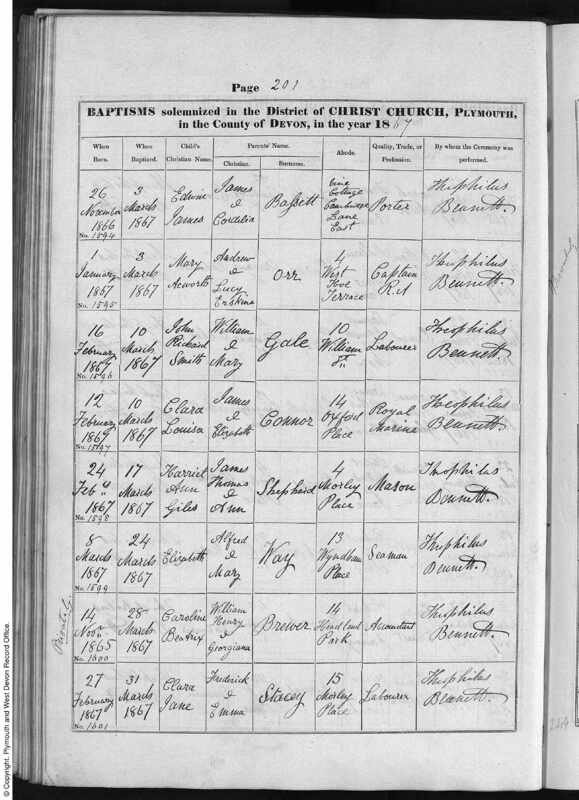 Page 201
BAPTISMS solemnized in the District of CHRIST CHURCH, PLYMOUTH,
in the County of DEVON, in the year 1867
When Born. When Baptized. Child's Christian Name. Parents' Name. Christian. Surname. Abode. Quality, Trade, or Profession. By whom the Ceremony was performed.
26 November 1866 No. 1594 3 March 1867 Edwin James James & Cordelia Bassett Vine Cottage Cambridge Lane East Porter Theophilus Bennett.
1 January 1867 No. 1595 3 March 1867 Mary Acworth Andrew & Lucy Erskine Orr 4 West Hoe Terrace Captain R.A Theophilus Bennett.
16 February 1867 No. 1596 10 March 1867 John Rickard Smith William & Mary Gale 10 William St. Labourer Theophilus Bennett.
12 February 1867 No. 1597 10 March 1867 Clara Louisa James & Elizabeth Connor 14 Oxford Place Royal Marine Theophilus Bennett.
24 Feby 1867 No. 1598 17 March 1867 Harriet Ann Giles James Thomas & Ann Shepheard 4 Morley Place Mason Theophilus Bennett.
8 March 1867 No. 1599 24 March 1867 Elizabeth Alfred & Mary Way 13 Wyndham Place Seaman Theophilus Bennett.
Privately
14 Novr 1865 No. 1600 28 March 1867 Caroline Beatrix William Henry & Georgiana Brewer 14 Headland Park Accountant Theophilus Bennett.
27 February 1867 No. 1601 31 March 1867 Clara Jane Frederick & Emma Stacey 15 Morley Place Labourer Theophilus Bennett.
© Copyright. Plymouth and West Devon Record Office.